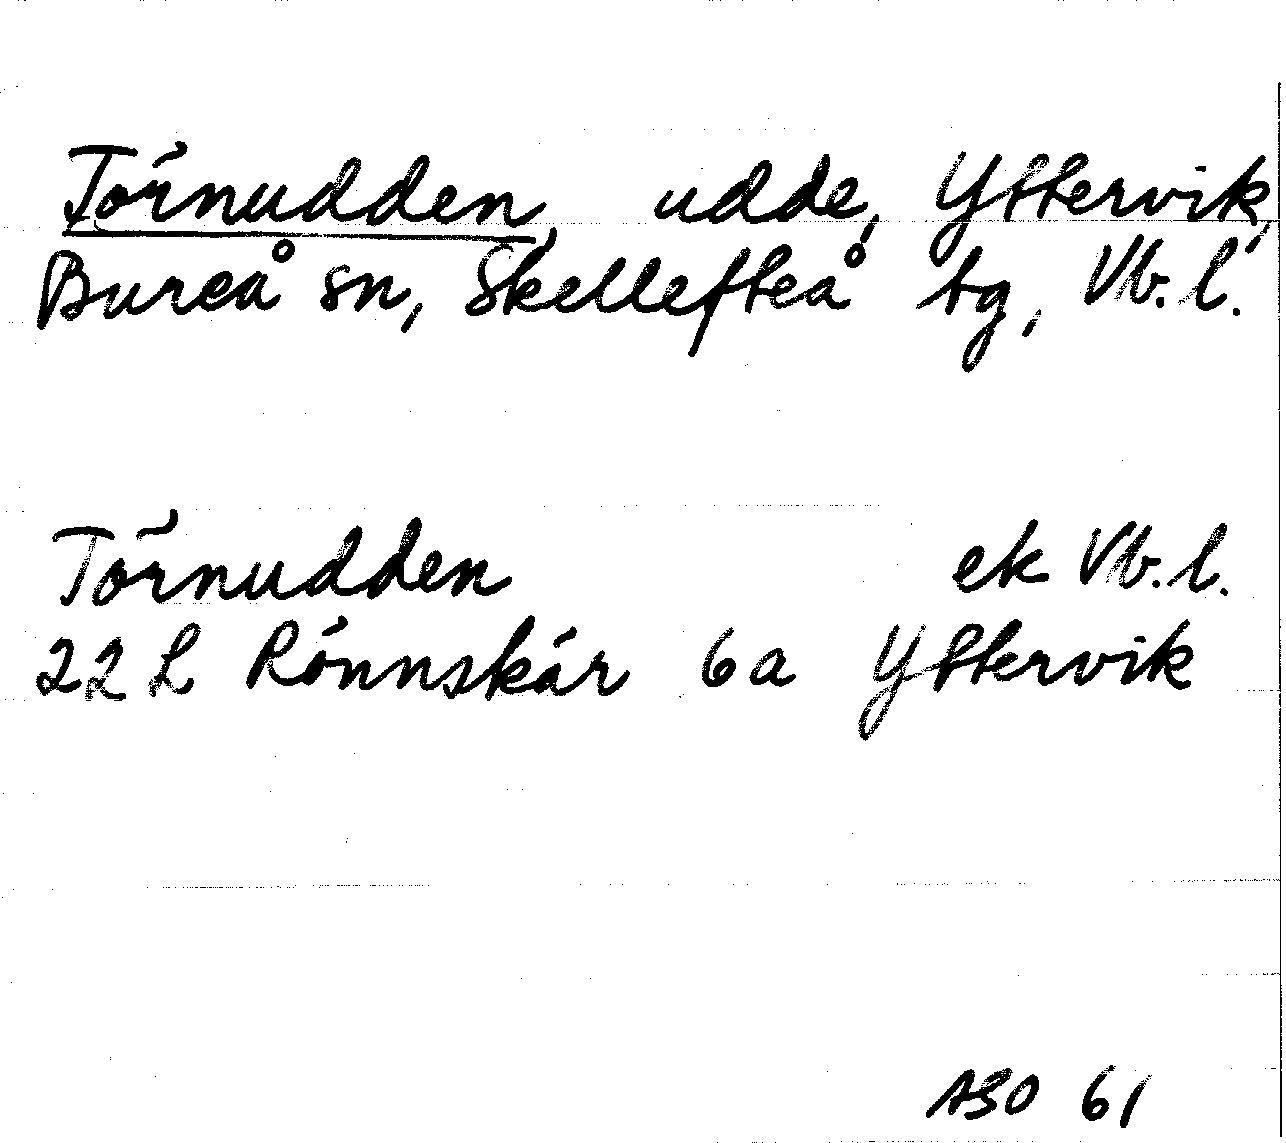 Törnudden, udde, Yttervik,
Bureå sn, Skellefteå tg, Vb. l.
Törnudden ek Vb. l.
22 L Rönnskär 6 a Yttervik
ASO 61